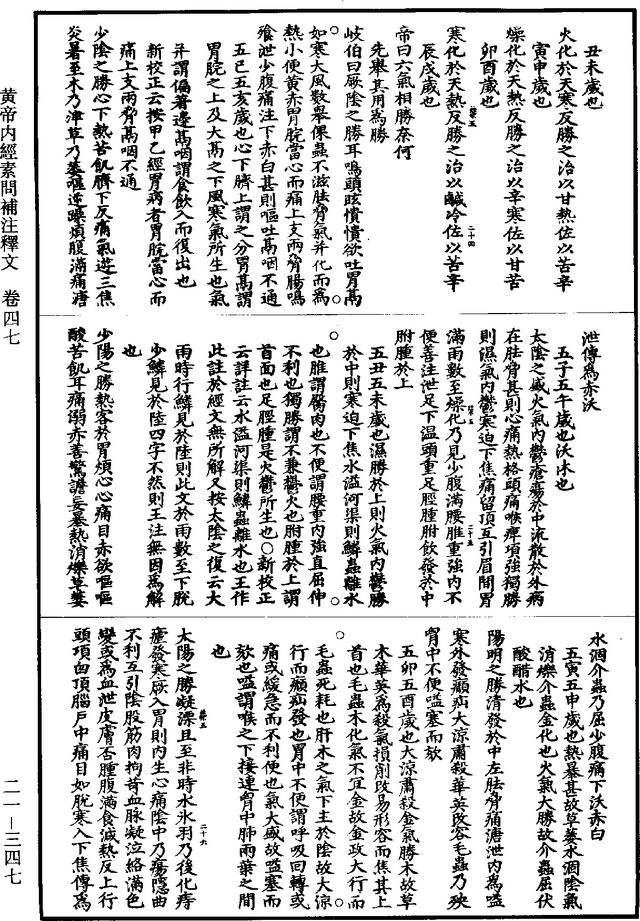 黄帝内經素問補注釋文　卷四七
丑未歲也
火化於天寒反勝之治以甘熱佐以苦辛
寅申歲也
燥化於天熱反勝之治以辛寒佐以苦甘
卯酉歲也
寒化於天熱反勝之治以鹹冷佐以苦辛
辰戌歲也
帝曰六氣相勝柰何
先舉其用爲勝
岐伯曰厥陰之勝耳鳴頭眩憒憒欲吐胃鬲
如寒大風數舉倮蟲不滋胠脅氣并化而爲
熱小便黄赤胃脘當心而痛上支兩脅腸鳴
飱泄少腹痛注下赤白甚則嘔吐鬲咽不通
五巳五亥歲也心下臍上謂之分胃鬲謂
胃脘之上及大鬲之下風寒氣所生也氣
并謂偏著邊鬲咽謂食飲入而復出也
新校正云按甲乙經胃病者胃脘當心而
痛上支兩脅鬲咽不通
少陰之勝心下熱苦飢臍下反痛氣遊三焦
炎暑至木乃津草乃萎嘔逆躁煩腹滿痛溏
泄傳爲赤沃
五子五午歲也沃沐也
太陰之勝火氣内鬱瘡瘍於中流散於外病
在胠脅甚則心痛熱格頭痛喉痺項強獨勝
則濕氣内鬱寒迫下焦痛留頂互引眉間胃
滿雨數至燥化乃見少腹滿腰脽重強内不
便善注泄足下温頭重足脛腫胕飲發於中
胕腫於上
五丑五未歲也濕勝於上則火氣内鬱勝
於中則寒迫下焦水溢河渠則鱗蟲離水
也脽謂臀肉也不便謂腰重内強直屈伸
不利也獨勝謂不兼鬱火也胕腫於上謂
首面也足脛腫是火鬱所生也○新校正
云詳註云水溢河渠則鱗蟲離水也王作
此註於經文無所解又按太陰之復云大
雨時行鱗見於陸則此文於雨數至下脱
少鱗見於陸四字不然則王注無因爲解
也
少陽之勝熱客於胃煩心心痛目赤欲嘔嘔
酸苦飢耳痛溺赤善驚譫妄暴熱消爍草萎
水涸介蟲乃屈少腹痛下沃赤白
五寅五申歲也熱暴甚故草萎水涸陰氣
消爍介蟲金化也火氣大勝故介蟲屈伏
酸醋水也
陽明之勝清發於中左胠脅痛溏泄内爲嗌
塞外發㿗疝大涼肅殺華英改容毛蟲乃殃
胷中不便嗌塞而欬
五卯五酉歲也大涼肅殺金氣勝木故草
木華英爲殺氣損削改易形容而焦其上
首也毛蟲木化氣不宜金故金政大行而
毛蟲死耗也肝木之氣下主於陰故大涼
行而㿗疝發也胃中不便謂呼吸回轉或
痛或緩急而不利便也氣大盛故嗌塞而
欬也嗌謂喉之下接連胷中肺兩葉之間
也
太陽之勝凝凓且至非時水氷羽乃後化痔
瘧發寒厥入胃則内生心痛陰中乃瘍隱曲
不利互引陰股筋肉拘苛血脉凝泣絡滿色
變或爲血泄皮膚否腫腹滿食減熱反上行
頭項囟頂腦戶中痛目如脱寒入下焦傳爲
二一—三四七